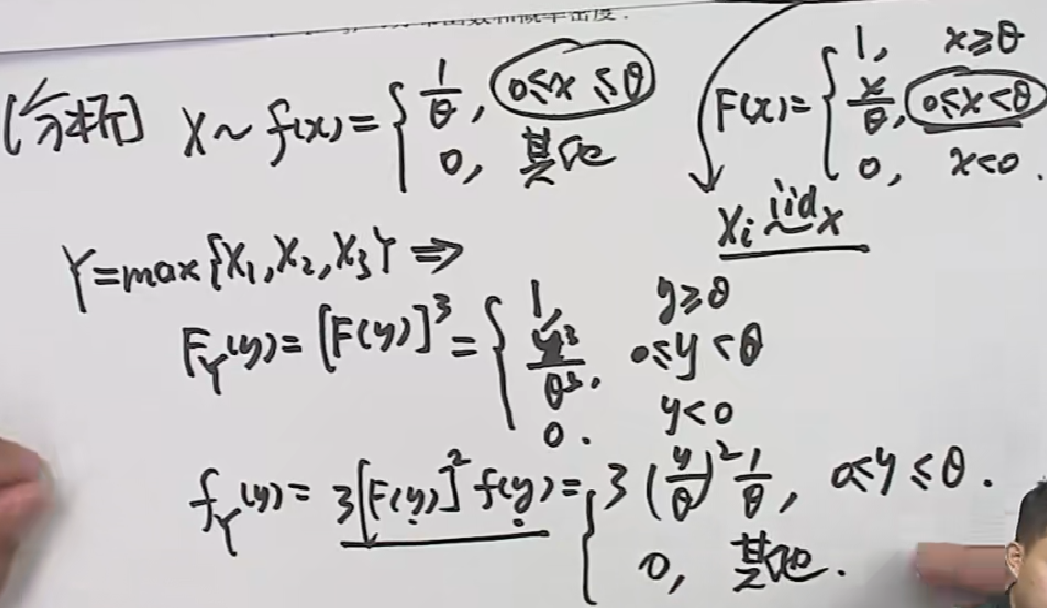 [分析] X ~ f(x) = { 1/θ, 0≤x≤θ
0, 其它
F(x) = { 1, x≥θ
x/θ, 0≤x<θ
0, x<0.
Xi iid~ X
Y=max{X₁,X₂,X₃} ⇒
F_Y(y) = [F(y)]³ = { 1, y≥θ
y³/θ³, 0≤y<θ
0. y<0
f_Y(y) = 3[F(y)]² f(y) = { 3(y/θ)² 1/θ, 0≤y≤θ.
0, 其他.